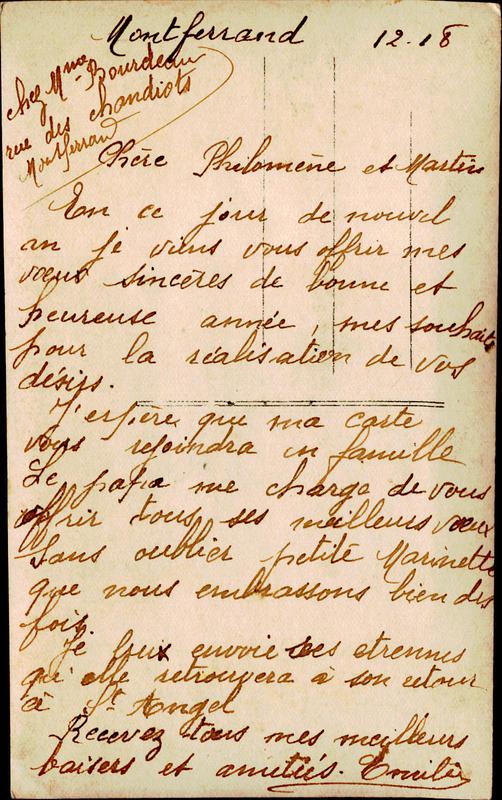 Montferrand 12.18
chez Mme Bourdeau
rue des chandiots
Montferrand
Chère Philomène et Martin
En ce jour de nouvel
an je viens vous offrir mes
vœux sincères de bonne et
heureuse année, mes souhaits
pour la réalisation de vos
désirs.
J'espère que ma carte
vous rejoindra en famille
Le papa me charge de vous
offrir tous ses meilleurs vœux
Sans oublier petite Marinette
que nous embrassons bien des
fois.
Je lui envoie ses etrennes
qu'elle retrouvera à son retour
à St Angel
Recevez tous mes meilleurs
baisers et amitiés. Emilie